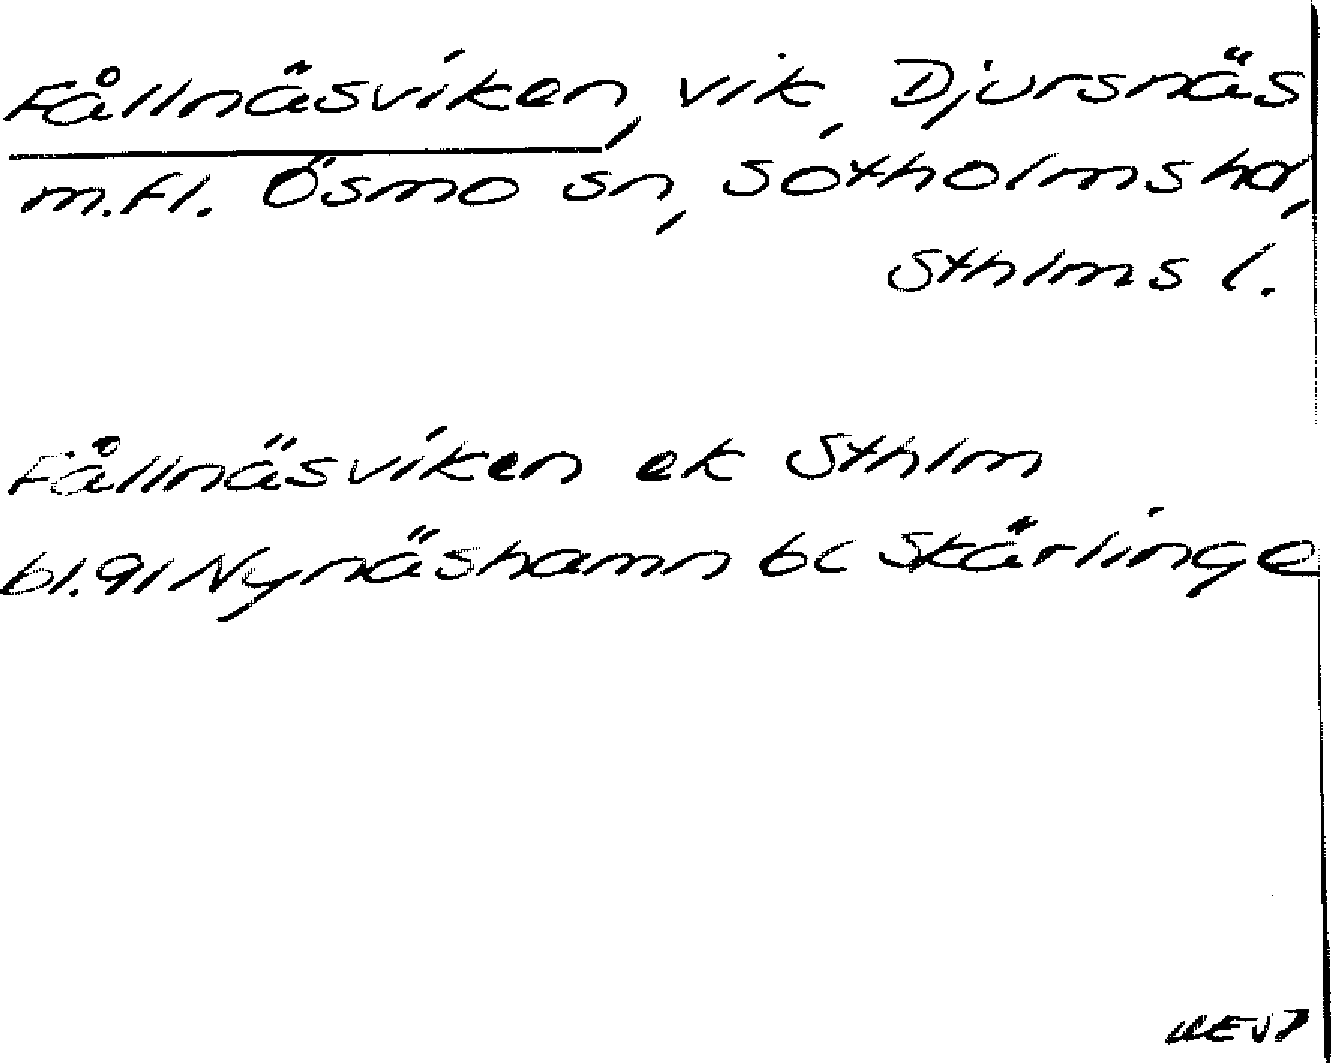 Fållnäsviken, vik, Djursnäs
m.fl. Ösmo sn, Sotholms hd,
Sthlms l.
Fållnäsviken ek Sthlm
bl. 91 Nynäshamn bc Skårlinge